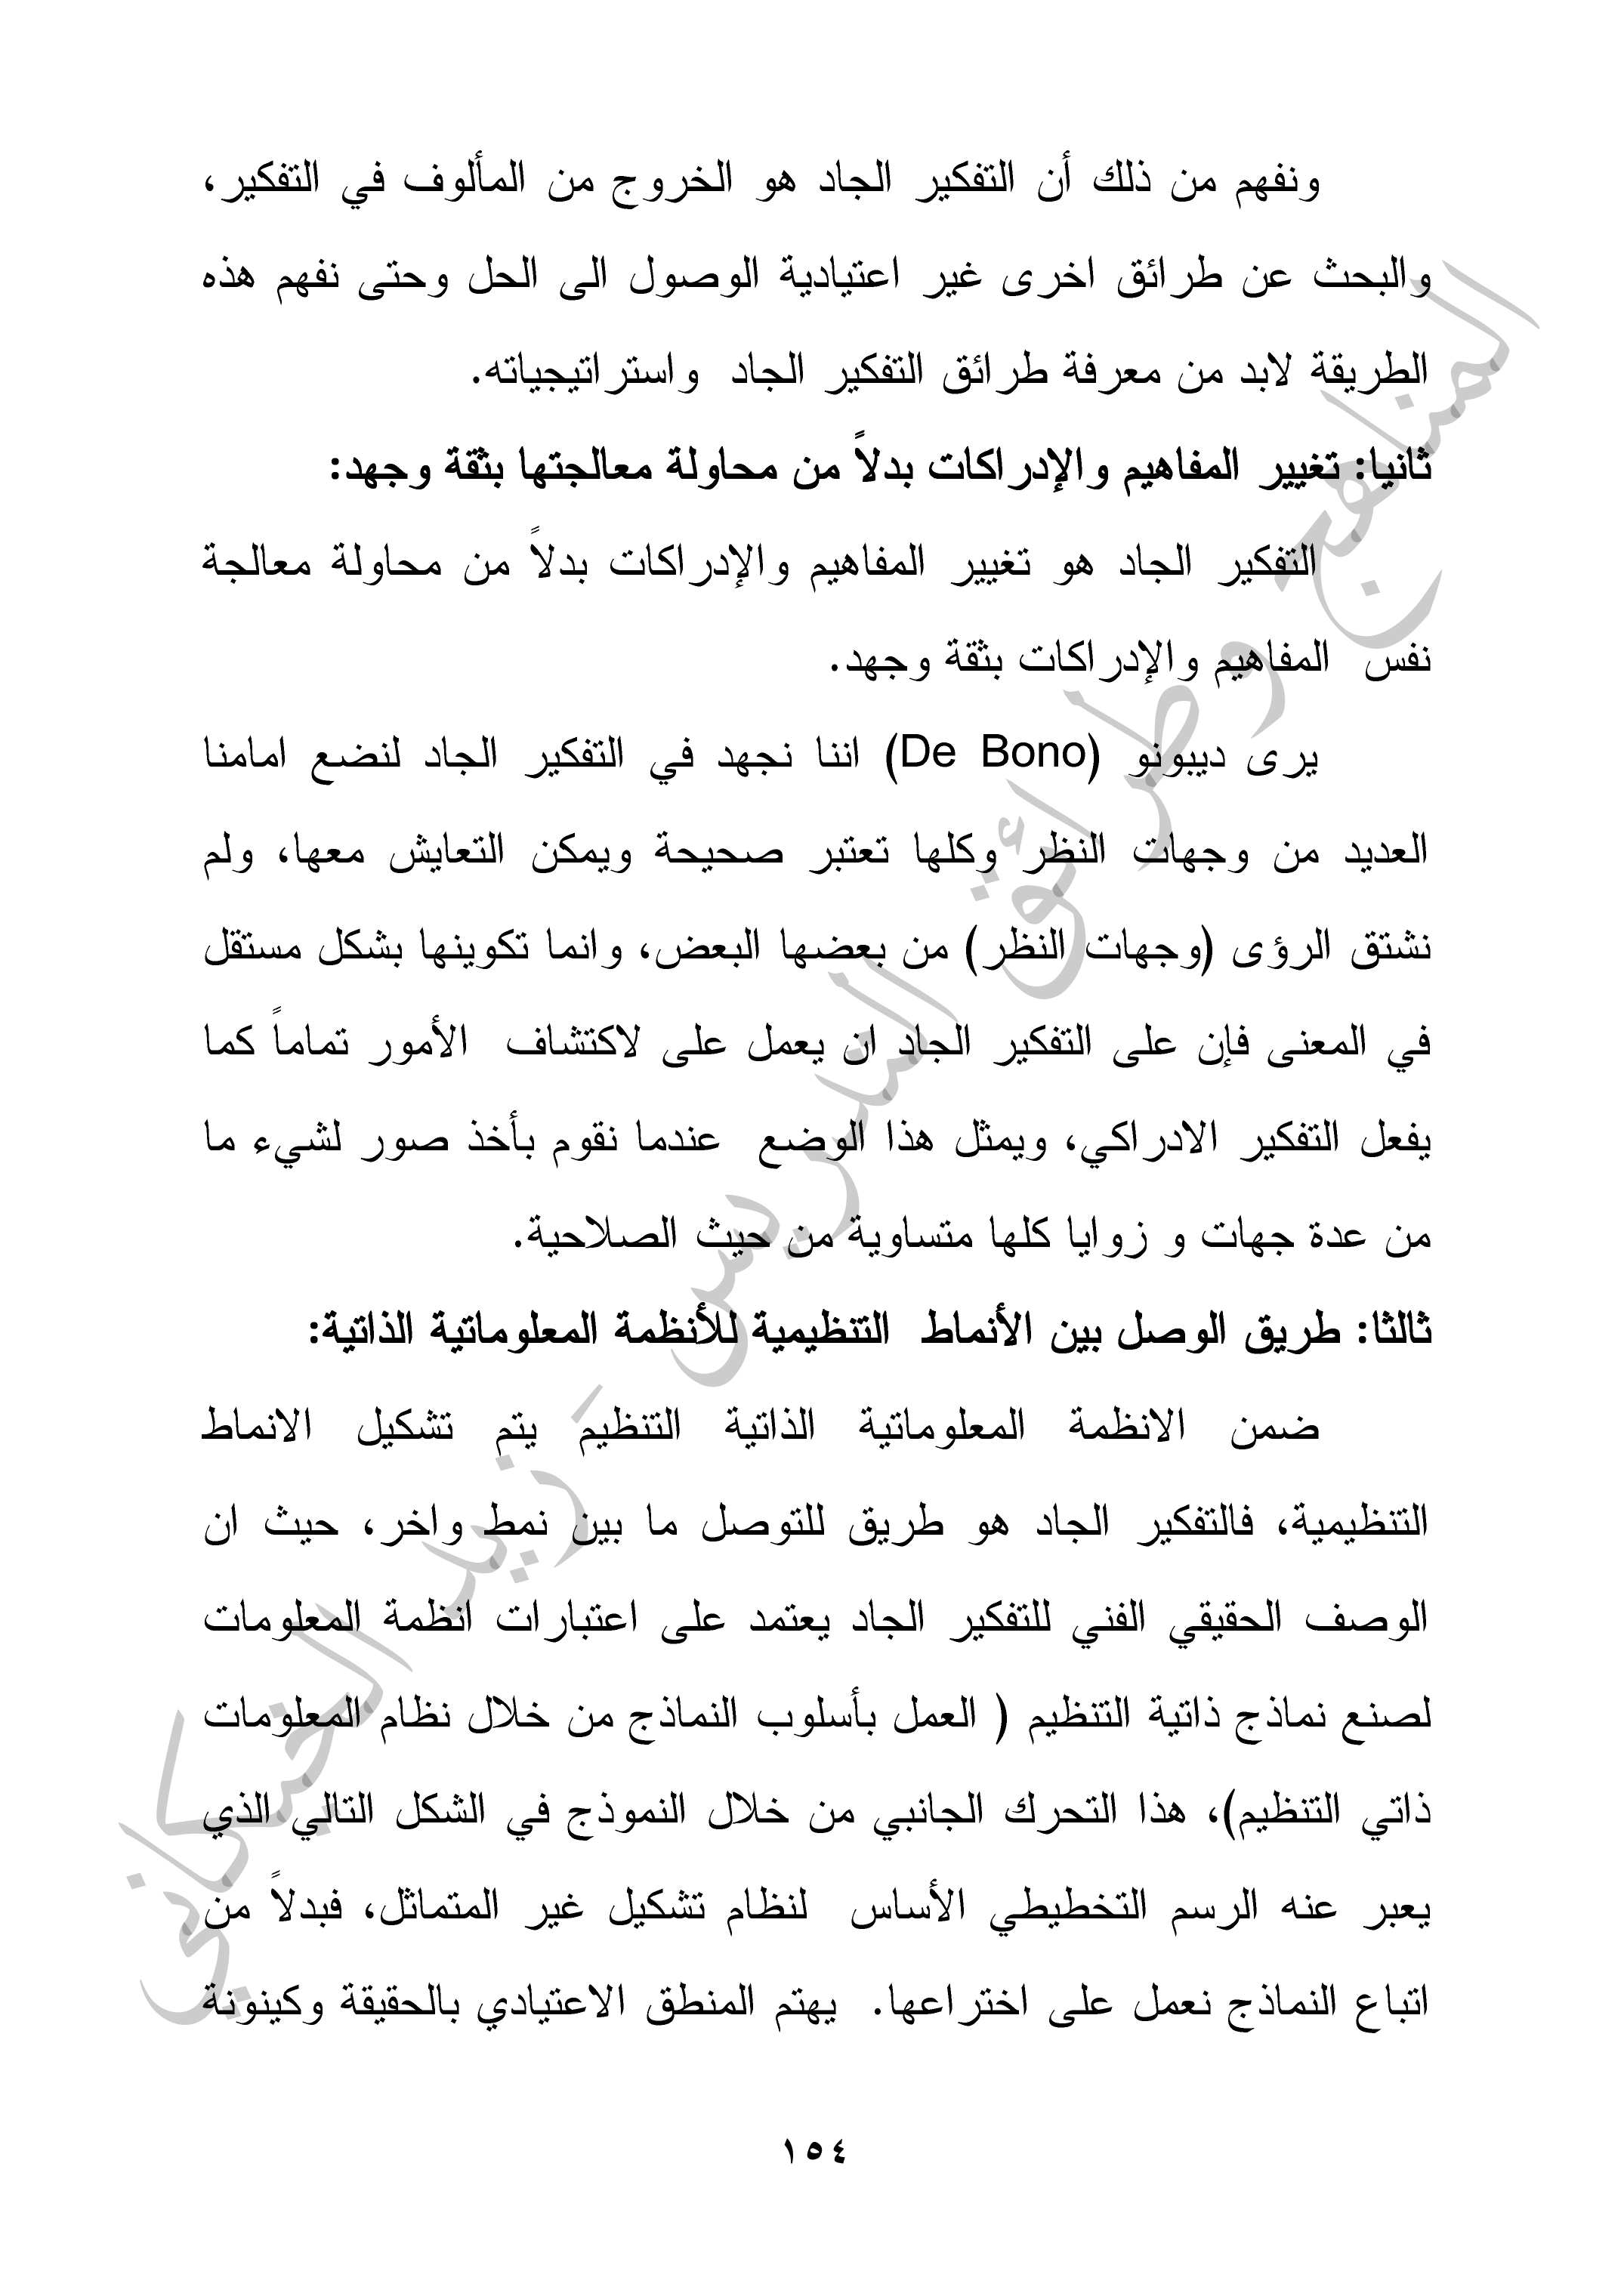 ونفهم من ذلك أن التفكير الجاد هو الخروج من المألوف في التفكير،
والبحث عن طرائق اخرى غير اعتيادية الوصول الى الحل وحتى نفهم هذه
الطريقة لابد من معرفة طرائق التفكير الجاد واستراتيجياته.
ثانيا: تغيير المفاهيم والإدراكات بدلاً من محاولة معالجتها بثقة وجهد:
التفكير الجاد هو تغيير المفاهيم والإدراكات بدلاً من محاولة معالجة
نفس المفاهيم والإدراكات بثقة وجهد.
يرى ديبونو (De Bono) اننا نجهد في التفكير الجاد لنضع امامنا
العديد من وجهات النظر وكلها تعتبر صحيحة ويمكن التعايش معها، ولم
نشتق الرؤى (وجهات النظر) من بعضها البعض، وانما تكوينها بشكل مستقل
في المعنى فإن على التفكير الجاد ان يعمل على لاكتشاف الأمور تماماً كما
يفعل التفكير الادراكي، ويمثل هذا الوضع عندما نقوم بأخذ صور لشيء ما
من عدة جهات و زوايا كلها متساوية من حيث الصلاحية.
ثالثا: طريق الوصل بين الأنماط التنظيمية للأنظمة المعلوماتية الذاتية:
ضمن الانظمة المعلوماتية الذاتية التنظيم يتم تشكيل الانماط
التنظيمية، فالتفكير الجاد هو طريق للتوصل ما بين نمط واخر، حيث ان
الوصف الحقيقي الفني للتفكير الجاد يعتمد على اعتبارات انظمة المعلومات
لصنع نماذج ذاتية التنظيم ( العمل بأسلوب النماذج من خلال نظام المعلومات
ذاتي التنظيم)، هذا التحرك الجانبي من خلال النموذج في الشكل التالي الذي
يعبر عنه الرسم التخطيطي الأساس لنظام تشكيل غير المتماثل، فبدلاً من
اتباع النماذج نعمل على اختراعها. يهتم المنطق الاعتيادي بالحقيقة وكينونة
١٥٤
المناهج وطرائق التدريس - زيد الخيكاني